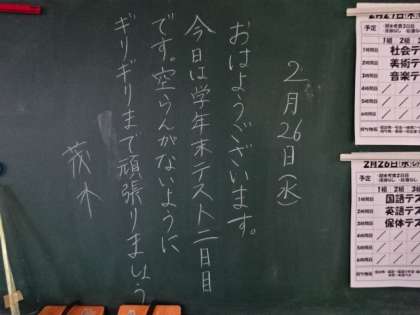 2月26日(水)
おはようございます。
今日は学年末テスト二日目
です。空らんがないように
ギリギリまで頑張りましょう
茂木
2月27日(木)
予定
1組 2組 3
1時間目
社会テ
2時間目
美術テ
3時間目
音楽テ
4時間目
5時間目
6時間目
2月26日(水)
予定
1組 2組 3組
1時間目
国語テス
2時間目
英語テス
3時間目
保体テス
4時間目
5時間目
6時間目